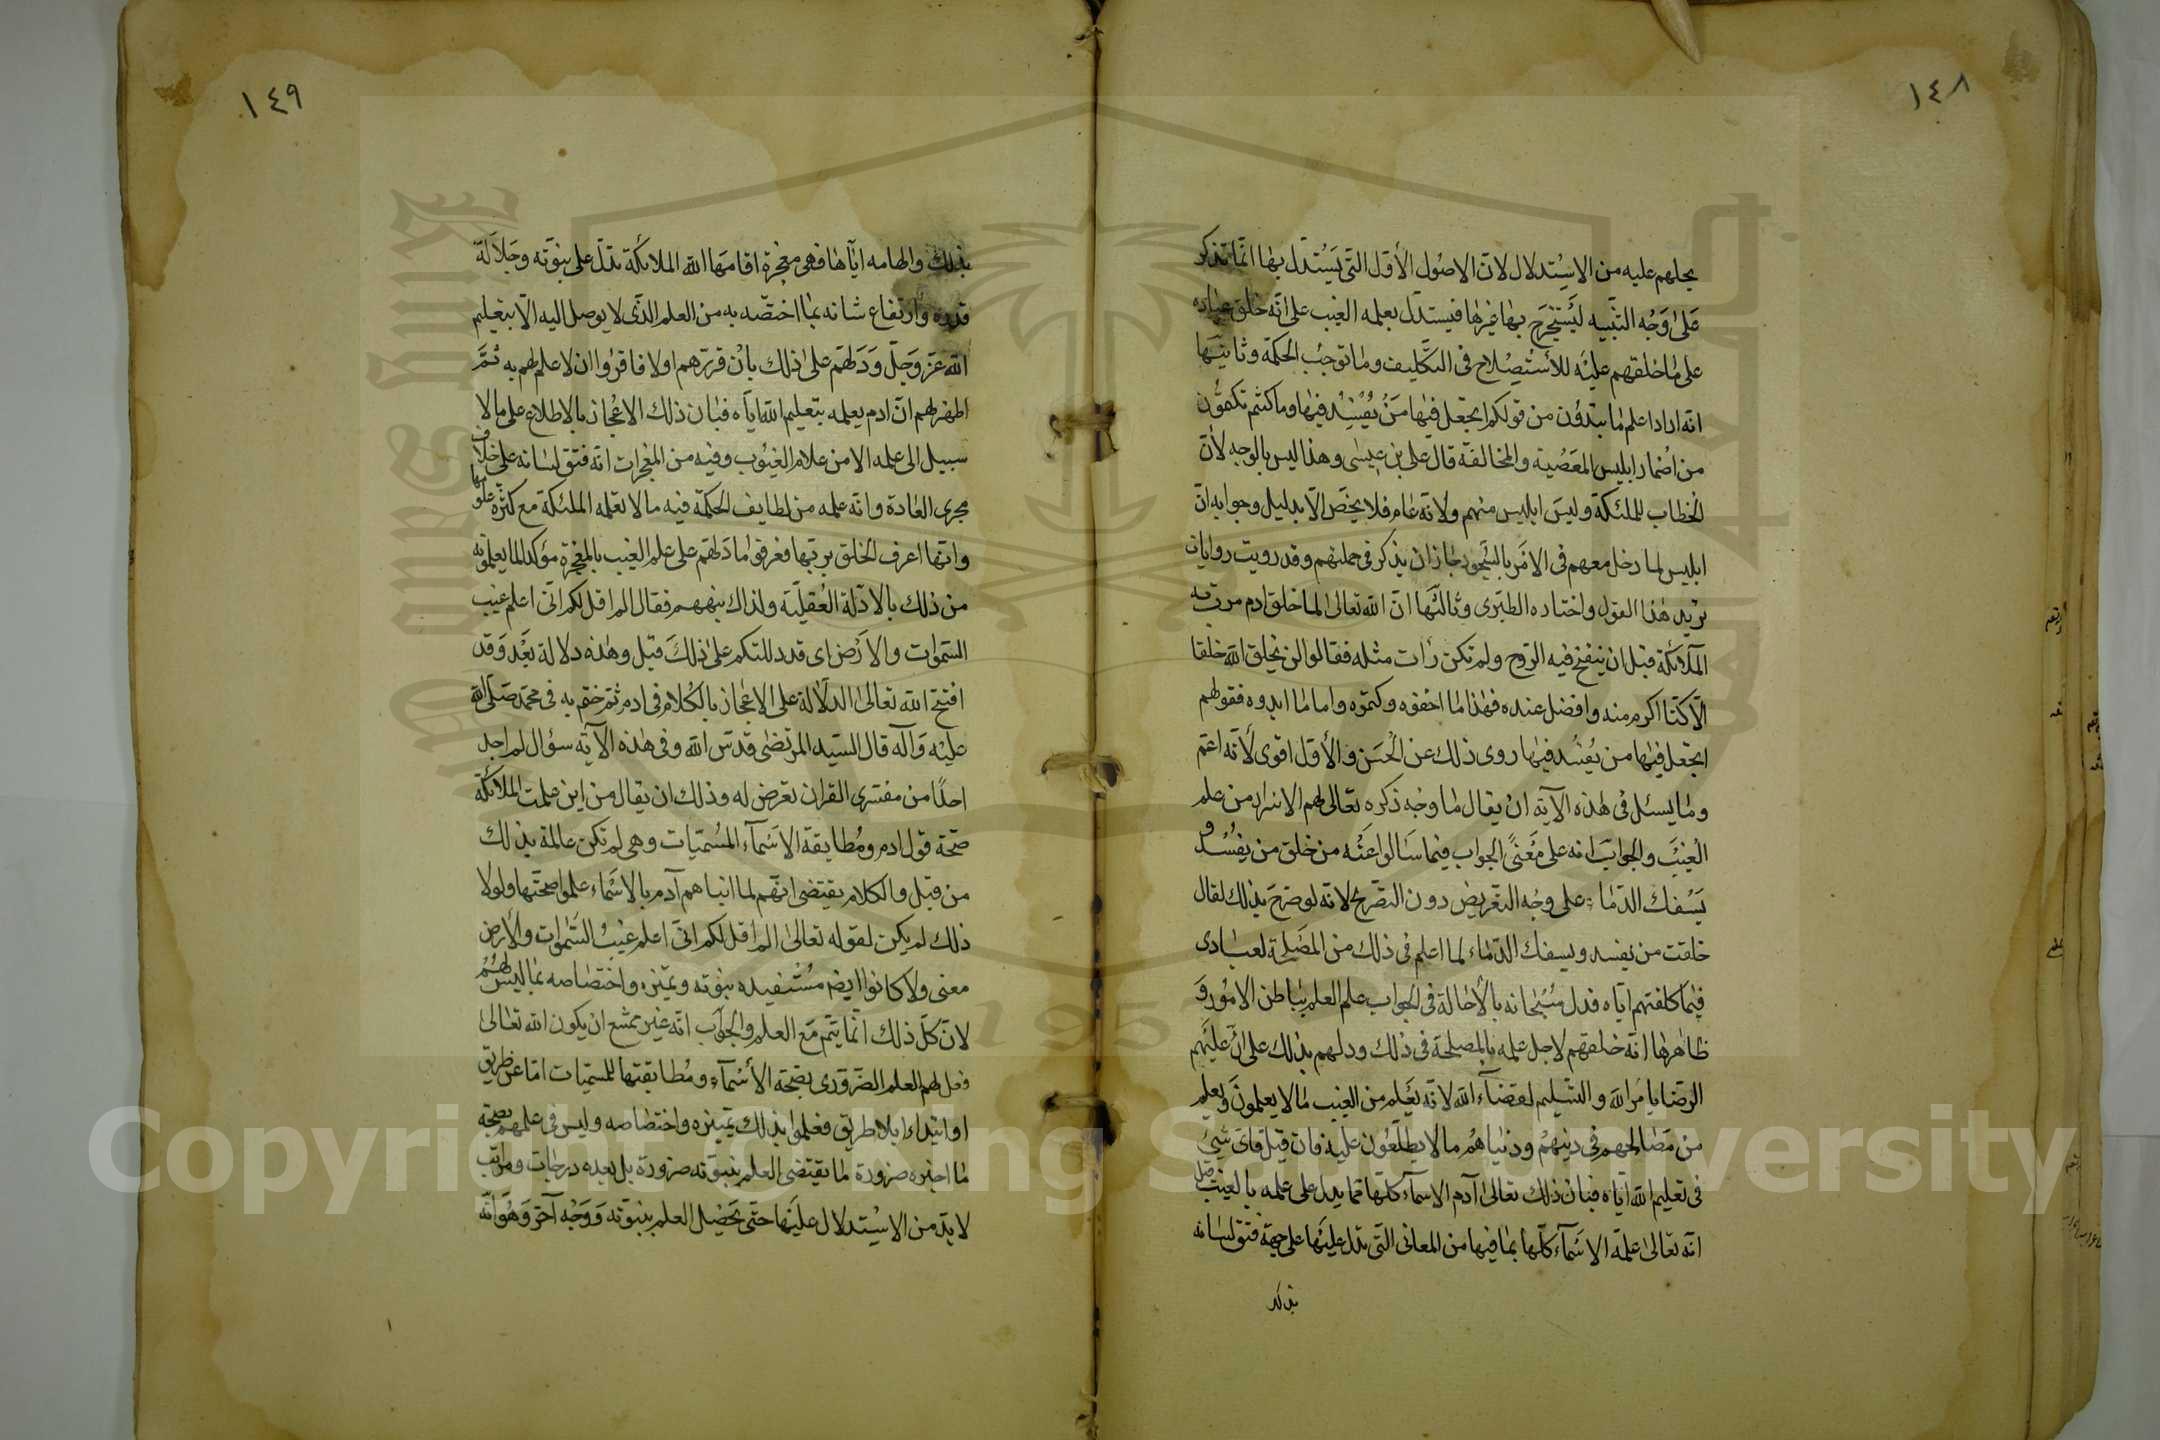 ١٤٨
يحلهم عليه من الاستدلال لان الاصول الأول التى يستدل بها انما تذكر
على وجه التنبيه ليستخرج بها غيرها فيستدل بعلمه الغيب على انه خلق عباده
على ما خلقهم عليه للأستصلاح فى التكليف وما توجبه الحكمة وثانيها
انه اراد اعلم ما تبدون من قولكم اتجعل فيها من يفسد فيها وما كنتم تكتمون
من اضمار ابليس المعصية والمخالفة قال على بن عيسى وهذا ليس بالوجه لأن
الخطاب للملئكة وليس ابليس منهم ولانه عام فلا يخص الا بدليل وجوابه ان
ابليس لما دخل معهم فى الامر بالسجود جاز ان يذكر فى جملتهم وقد رويت روايات
تريد هذا القول واختاره الطبرى وثالثها ان الله تعالى لما خلق ادم مرت به
الملائكة قبل ان ينفخ فيه الروح ولم تكن رأت مثله فقالوا لن يخلق الله خلقا
الا كنا اكرم منه وافضل عنده فهذا ما اخفوه وكتموه واما ما ابدوه فقولهم
اتجعل فيها من يفسد فيها روى ذلك عن الحسن والأول اقوى لأنه اعم
وما يسئل فى هذه الآية ان يقال ما وجه ذكره تعالى لهم الاسرار من علم
الغيب والجواب انه على معنى الجواب فيما سالوا عنه من خلق من يفسد و
يسفك الدماء على وجه التعريض دون التصريح لانه لو صرح بذلك لقال
خلقت من يفسد ويسفك الدماء لما اعلم فى ذلك من المصلحة لعبادى
فيما كلفتهم اياه فدل سبحانه بالأحالة فى الجواب علم العلم بباطن الامور و
ظاهرها انه خلقهم لاجل علمه بالمصلحة فى ذلك ودلهم بذلك على ان عليهم
الرضا بامر الله والتسليم لقضاء الله لانه يعلم من الغيب ما لا يعلمون ويعلم
من مصالحهم فى دينهم ودنياهم ما لا يطلعون عليه فان قيل فاى شئ
فى تعليم الله اياه فبان ذلك تعالى آدم الاسماء كلها مما يدل على علمه بالغيب قيل
انه تعالى علمه الاسماء كلها بما فيها من المعانى التى تدل عليها على جهة فتق لسانه
بذلك
١٤٩
بذلك والهامه اياها فهى معجزة اقامها الله الملائكة تدل على نبوته وجلالة
قدره وارتفاع شانه بما اختصه به من العلم الذى لا يوصل اليه الا بتعليم
الله عز وجل ودلهم على ذلك بأن قررهم اولا فاقروا ان لا علم لهم به ثم
اظهر لهم ان ادم يعلمه بتعليم الله اياه فبان ذلك الاعجاز بالاطلاع على ما لا
سبيل الى علمه الا من علام الغيوب وفيه من المعجزات انه فتق لسانه على خلاف
مجرى العادة وانه علمه من لطايف الحكمة فيه ما لا تعلمه الملئكة مع كثرة علومها
وانها اعرف الخلق بربها فعرفوا ما دلهم على علم الغيب بالمعجزة مؤكدا لما يعلمونه
من ذلك بالادلة العقلية ولذلك نبههم فقال الم اقل لكم انى اعلم غيب
السموات والارض اى قدد للتكم على ذلك قبل وهذه دلالة بعد وقد
افتتح الله تعالى الدلالة على الاعجاز بالكلام فى ادم ثم ختم به فى محمد صلى الله
عليه وآله قال السيد المرتضى قدس الله وفى هذه الآية سؤال لم اجد
احدا من مفسرى القران تعرض له وذلك ان يقال من اين علمت الملائكة
صحة قول ادم ومطابقة الاسماء المسميات وهى لم تكن عالمة بذلك
من قبل والكلام يقتضى انهم لما انباهم آدم بالاسماء علموا صحتها ولولا
ذلك لم يكن لقوله تعالى الم اقل لكم انى اعلم غيب السموات والأرض
معنى ولا كانوا ايضا مستفيده نبوته وتميزه واختصاصه بما ليس لهم
لان كل ذلك انما يتم مع العلم والجواب انه غير ممتنع ان يكون الله تعالى
فعل لهم العلم الضرورى بصحة الأسماء ومطابقتها للمسميات اما عن طريق
او ابتداء بلا طريق فعلموا بذلك تميزه واختصاصه وليس فى علمهم بصحة
ما اخبره ضرورة ما يقتضى العلم بنبوته ضرورة بل بعده درجات ومراتب
لا بد من الاستدلال عليها حتى يحصل العلم بنبوته ووجه آخر وهو انه
King Saud University
1957
Copyright © King Saud University